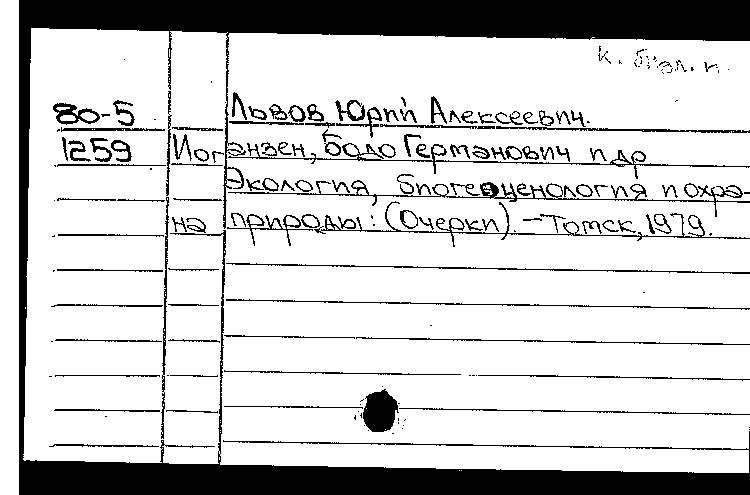 к. биол. н.
80-5 Львов Юрий Алексеевич.
1259 Иоганзен, Бодо Германович и др
Экология, биогеоценология и охра-
на природы: (Очерки). – Томск, 1979.